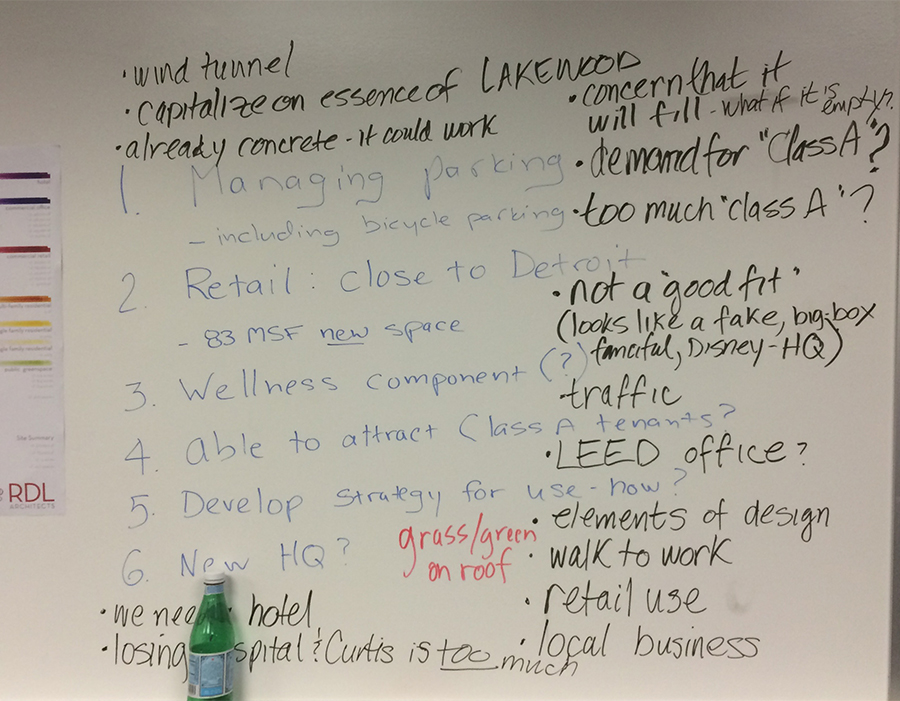 • wind tunnel
• capitalize on essence of LAKEWOOD
• already concrete - it could work
1. Managing parking
- including bicycle parking
2. Retail: close to Detroit
- 83 MSF new space
3. Wellness component (?)
4. Able to attract Class A tenants?
5. Develop strategy for use - how?
6. New HQ?
grass/green
on roof
• we need hotel
• losing spital & Curtis is too much
• concern that it
will fill - what if it is empty?
• demand for "Class A"?
• too much "class A"?
• not a "good fit"
(looks like a fake, big-box
fanciful, Disney-HQ)
• traffic
• LEED office?
• elements of design
• walk to work
• retail use
• local business
hotel
commercial office
commercial retail
public greenspace
Site Summary
RDL
ARCHITECTS